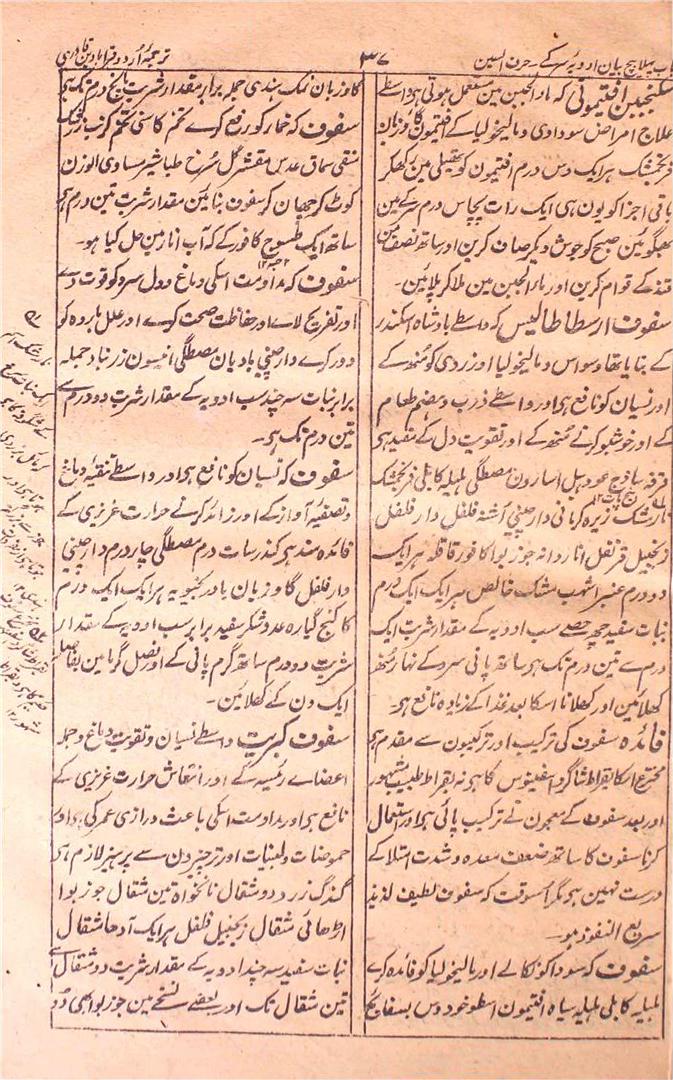 باب پہلا بیچ بیان ادویہ سر کے۔ حرف السین
۳۷
ترجمۂ اردو قرابادین قادری
سکنجبین افتیمونی کہ ماء الجبن مین مستعمل ہوتی ہی واسطے
علاج امراض سوداوی و مالیخولیا کے افتیمون گاوزبان
فرنجمشک ہر ایک دس درم افتیمون کو تھیلی مین رکھکر
باقی اجزا کو یون ہی ایک رات پچاس درم سرکے مین
بھگوئین صبح کو جوش دیکر صاف کرین اور ساتھ نصف من
قند کے قوام کرین اور ماء الجبن مین ملا کر پلائین۔
سفوف ارسطاطالیس کہ واسطے بادشاہ اسکندر
کے بنایا تھا وسواس و مالیخولیا اور زردی کو منھ کے
اور نسیان کو نافع ہی اور واسطے ذرب و ہضم طعام
کے اور خوشبو کرنے منھ کے اور تقویت دل کے مفید ہی
قرفہ ساذج عود ہیل اسارون مصطگی ہلیلہ کابلی فرنجمشک
نارمشک زیرہ کرمانی دارچینی آشنہ فلفل دارفلفل
زنجبیل قرنفل انار دانہ جوزبوا کافور قاقلہ ہر ایک
دو درم عنبر اشہب مشک خالص ہر ایک ایک درم
نبات سفید چھ حصے سب ادویہ کے مقدار شربت ایک
درم سے تین درم تک ہی ساتھ پانی سرد کے نہار منھ
کھلائین اور کھلانا اسکا بعد غذا کے زیادہ نافع ہی۔
فائدہ سفوف کی ترکیب اور ترکیبون سے مقدم ہی
مخترع اسکا بقراط شاگرد اسقلینوس کا ہی نہ بقراط طبیب مشہور
اور بعد سفوف کے معجون نے ترکیب پائی ہی اور استعمال
کرنا سفوف کا ساتھ ضعف معدہ و شدت امتلا کے
درست نہین ہی مگر اسوقت کہ سفوف لطیف لذیذ
سریع النفوذ ہو۔
سفوف کہ سودا کو نکالے اور مالیخولیا کو فائدہ کرے
ہلیلہ کابلی ہلیلہ سیاہ افتیمون اسطوخودوس بسفائج
گاوزبان نمک ہندی جملہ برابر مقدار شربت پانچ درم تک ہی
سفوف کہ خمار کو رفع کرے تخم کاسنی تخم کرنب زرشک
منقی سماق عدس مقشر گل سرخ طباشیر مساوی الوزن
کوٹ کر چھان کر سفوف بنائین مقدار شربت تین درم ہی
ساتھ ایک طسوج کافور کے کہ آب انار مین حل کیا ہو۔
سفوف کہ مداومت اسکی دماغ و دل سرد کو قوت دے
اور تفریح لاے اور حفاظت صحت کرے اور علل باردہ کو
دور کرے دارچینی بادیان مصطگی انیسون زرنباد جملہ
برابر نبات سہ چند سب ادویہ کے مقدار شربت دو درم سے
تین درم تک ہی۔
سفوف کہ نسیان کو نافع ہی اور واسطے تنقیہ دماغ
و تصفیۂ آواز کے اور زائد کرنے حرارت غریزی کے
فائدہ مند ہی کندر سات درم مصطگی چار درم دارچینی
دارفلفل گاوزبان بادرنجبویہ ہر ایک ایک درم
کاکنج گیارہ عدد شکر سفید برابر سب ادویہ کے مقدار
شربت دو درم ساتھ گرم پانی کے اور فصل گرما مین بفاصلہ
ایک دن کے کھلائین۔
سفوف کبریت واسطے نسیان و تقویت دماغ و جملہ
اعضاے رئیسہ کے اور انتعاش حرارت غریزی کے
نافع ہی اور مداومت اسکی باعث درازی عمر کی ہی اور
حموضات و لبنیات اور تر چیزون سے پرہیز لازم ہی
گندک زرد دو مثقال نانخواہ تین مثقال جوزبوا
اڑھائی مثقال زنجبیل فلفل ہر ایک آدھا مثقال
نبات سفید سہ چند ادویہ کے مقدار شربت دو مثقال سے
تین مثقال تک اور بعضے نسخے مین جوزبوا بھی دو